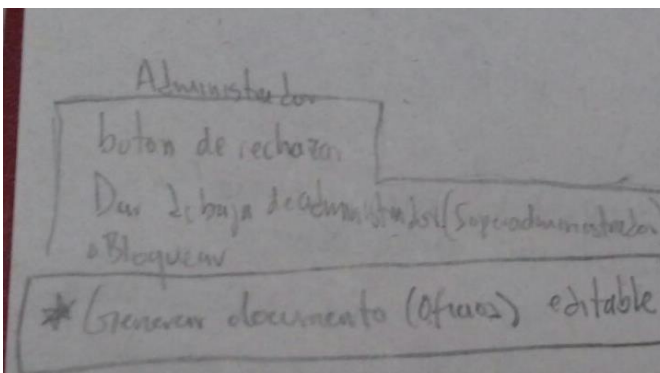 Administrador
boton de rechazar
Dar de baja de administrador (Superadministrador)
Bloquear
* Generar documento (Oficios) editable